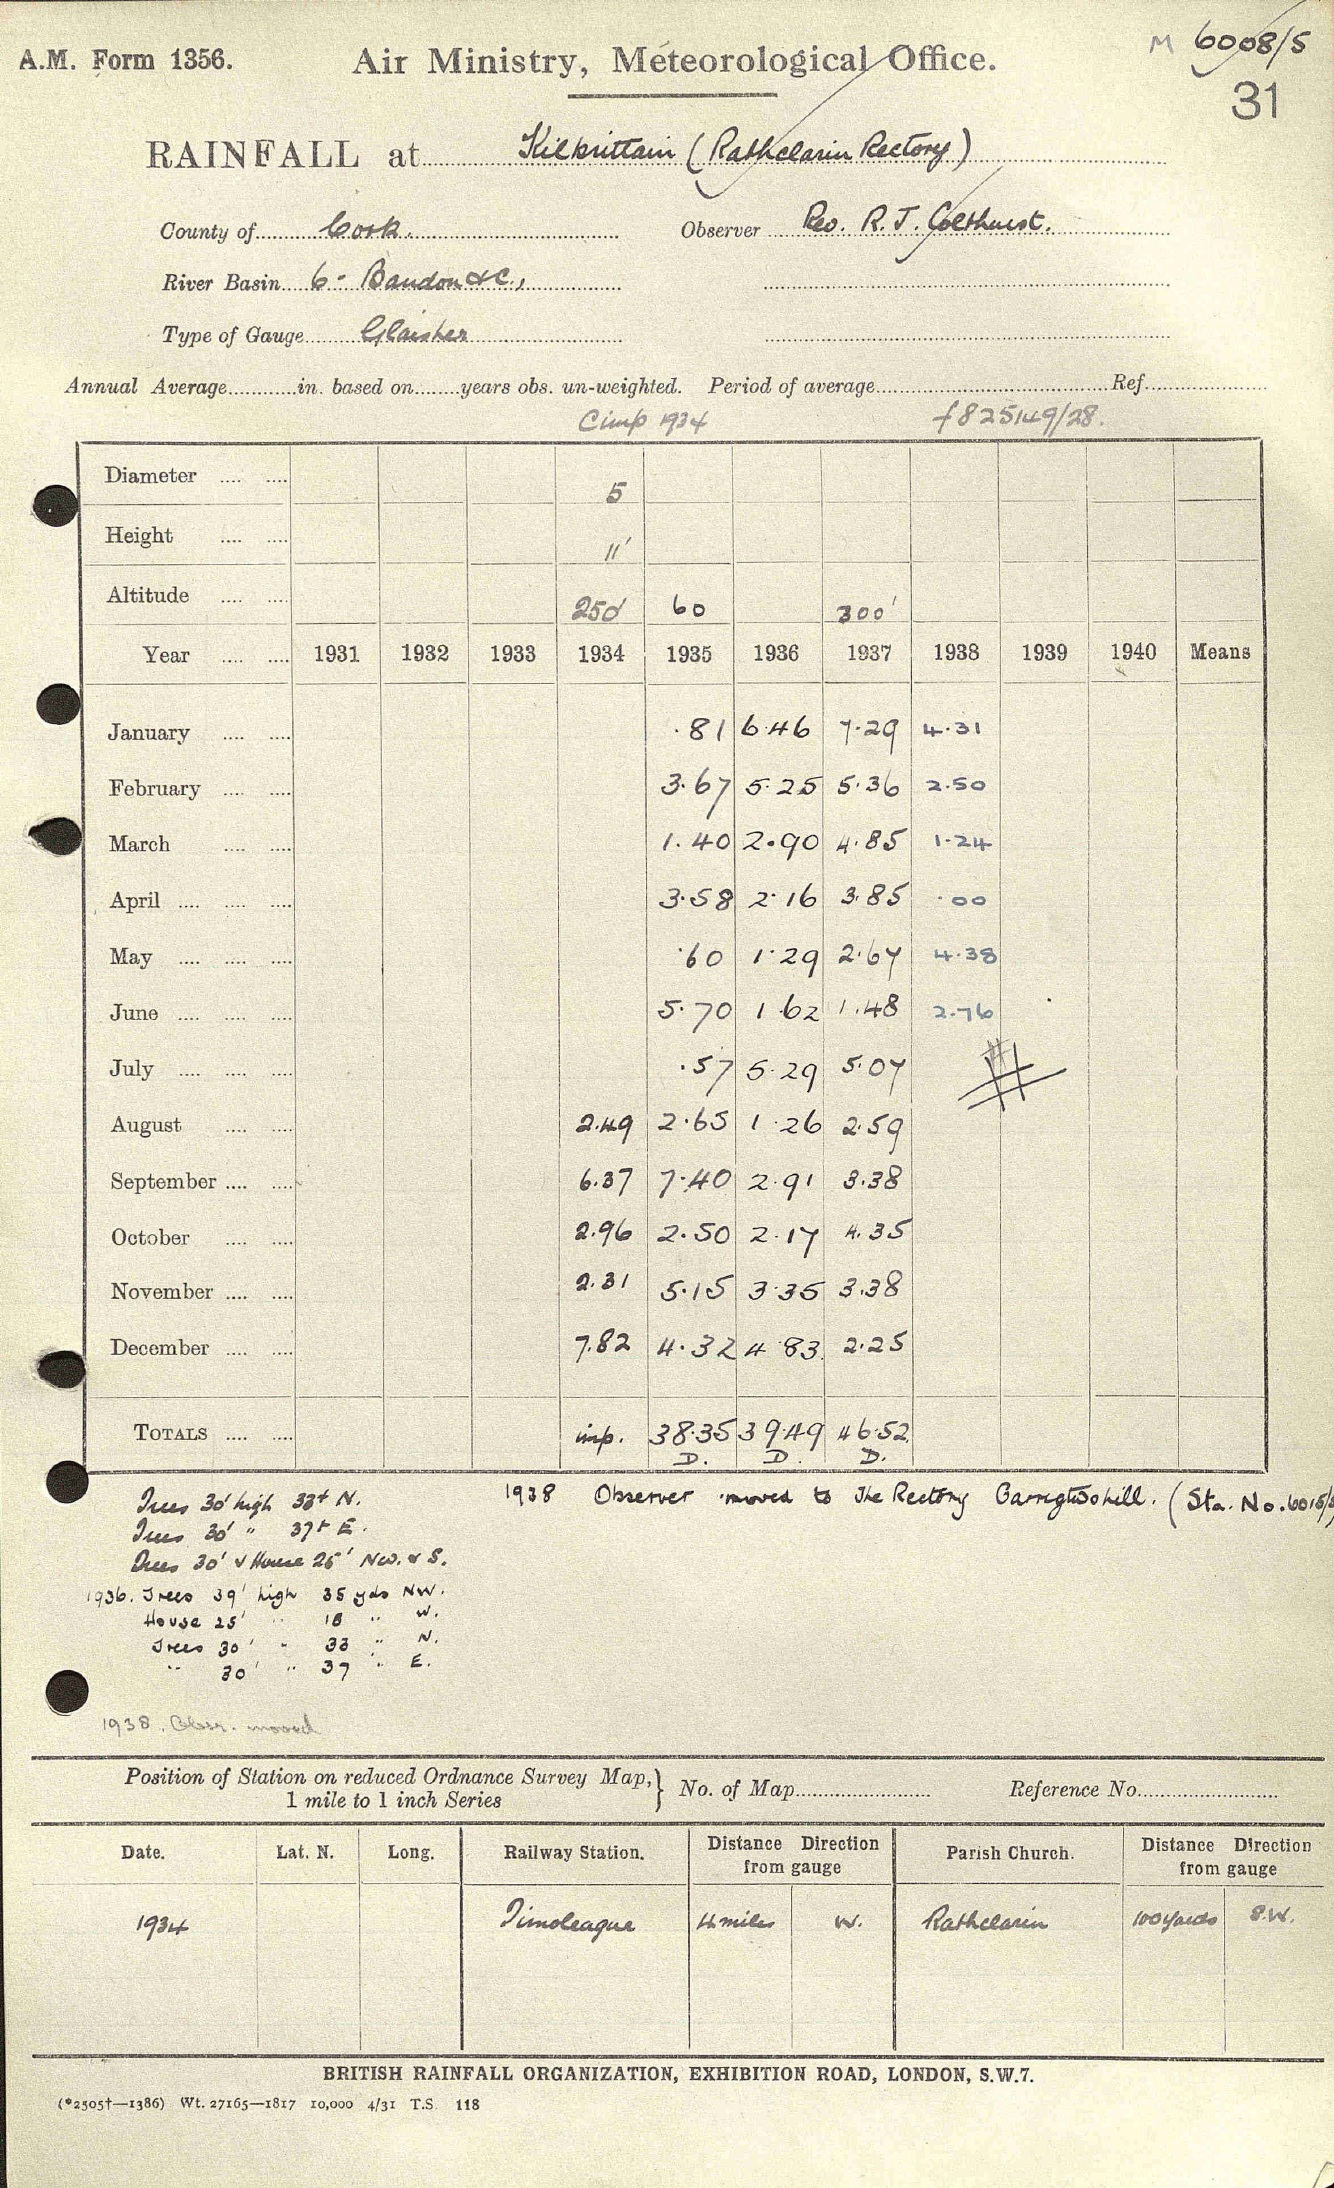 A.M. Form 1356.
Air Ministry, Meteorological Office.
M 6008/5
31
RAINFALL at Kilbrittain (Rathclarin Rectory)
County of Cork. Observer Rev. R. J. Colthurst.
River Basin 6 - Bandon &c.,
Type of Gauge Glaisher
Annual Average in. based on years obs. un-weighted. Period of average Ref
1934 f 825149/28.
Diameter .... .... 5
Height .... .... 11'
Altitude .... .... 250' 60 300'
Year .... .... 1931 1932 1933 1934 1935 1936 1937 1938 1939 1940 Means
January .... .... .81 6.46 7.29 4.31
February .... .... 3.67 5.25 5.36 2.50
March .... .... 1.40 2.90 4.85 1.24
April .... .... .... 3.58 2.16 3.85 .00
May .... .... .... .60 1.29 2.67 4.38
June .... .... .... 5.70 1.62 1.48 2.76
July .... .... .... .57 5.29 5.07
August .... .... 2.49 2.65 1.26 2.59
September .... .... 6.37 7.40 2.91 3.38
October .... .... 2.96 2.50 2.17 4.35
November .... .... 2.31 5.15 3.35 3.38
December .... .... 7.82 4.32 4.83 2.25
TOTALS .... .... inp. 38.35 39.49 46.52
D. D. D.
Trees 30' high 33+ N.
1938 Observer moved to The Rectory Carrigtwohill. (Sta. No. 6015/
Trees 30' " 37+ E.
Trees 30' & House 25' NW. & S.
1936. Trees 39' high 35 yds NW.
House 25' " 18 " W.
Trees 30' " 33 " N.
" 30' " 37 " E.
1938. Obsr. moved
Position of Station on reduced Ordnance Survey Map,} No. of Map Reference No.
1 mile to 1 inch Series
Date. Lat. N. Long. Railway Station. Distance Direction from gauge Parish Church. Distance Direction from gauge
1934 Timoleague 4 miles W. Rathclarin 100 yards S.W.
BRITISH RAINFALL ORGANIZATION, EXHIBITION ROAD, LONDON, S.W.7.
(*2505†—1386) Wt. 27165—1817 10,000 4/31 T.S. 118